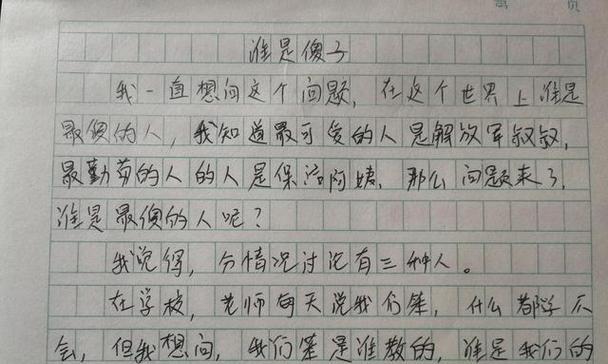 谁是傻子
我一直想问这个问题,在这个世界上谁是
最傻的人,我知道最可爱的人是解放军叔叔,
最勤劳的人的人是保洁阿姨,那么问题来了,
谁是最傻的人呢?
我觉得,分情况讨论有三种人。
在学校,老师每天说我们笨,什么都学不
会,但我想问,我们笨是谁教的,谁是我们的